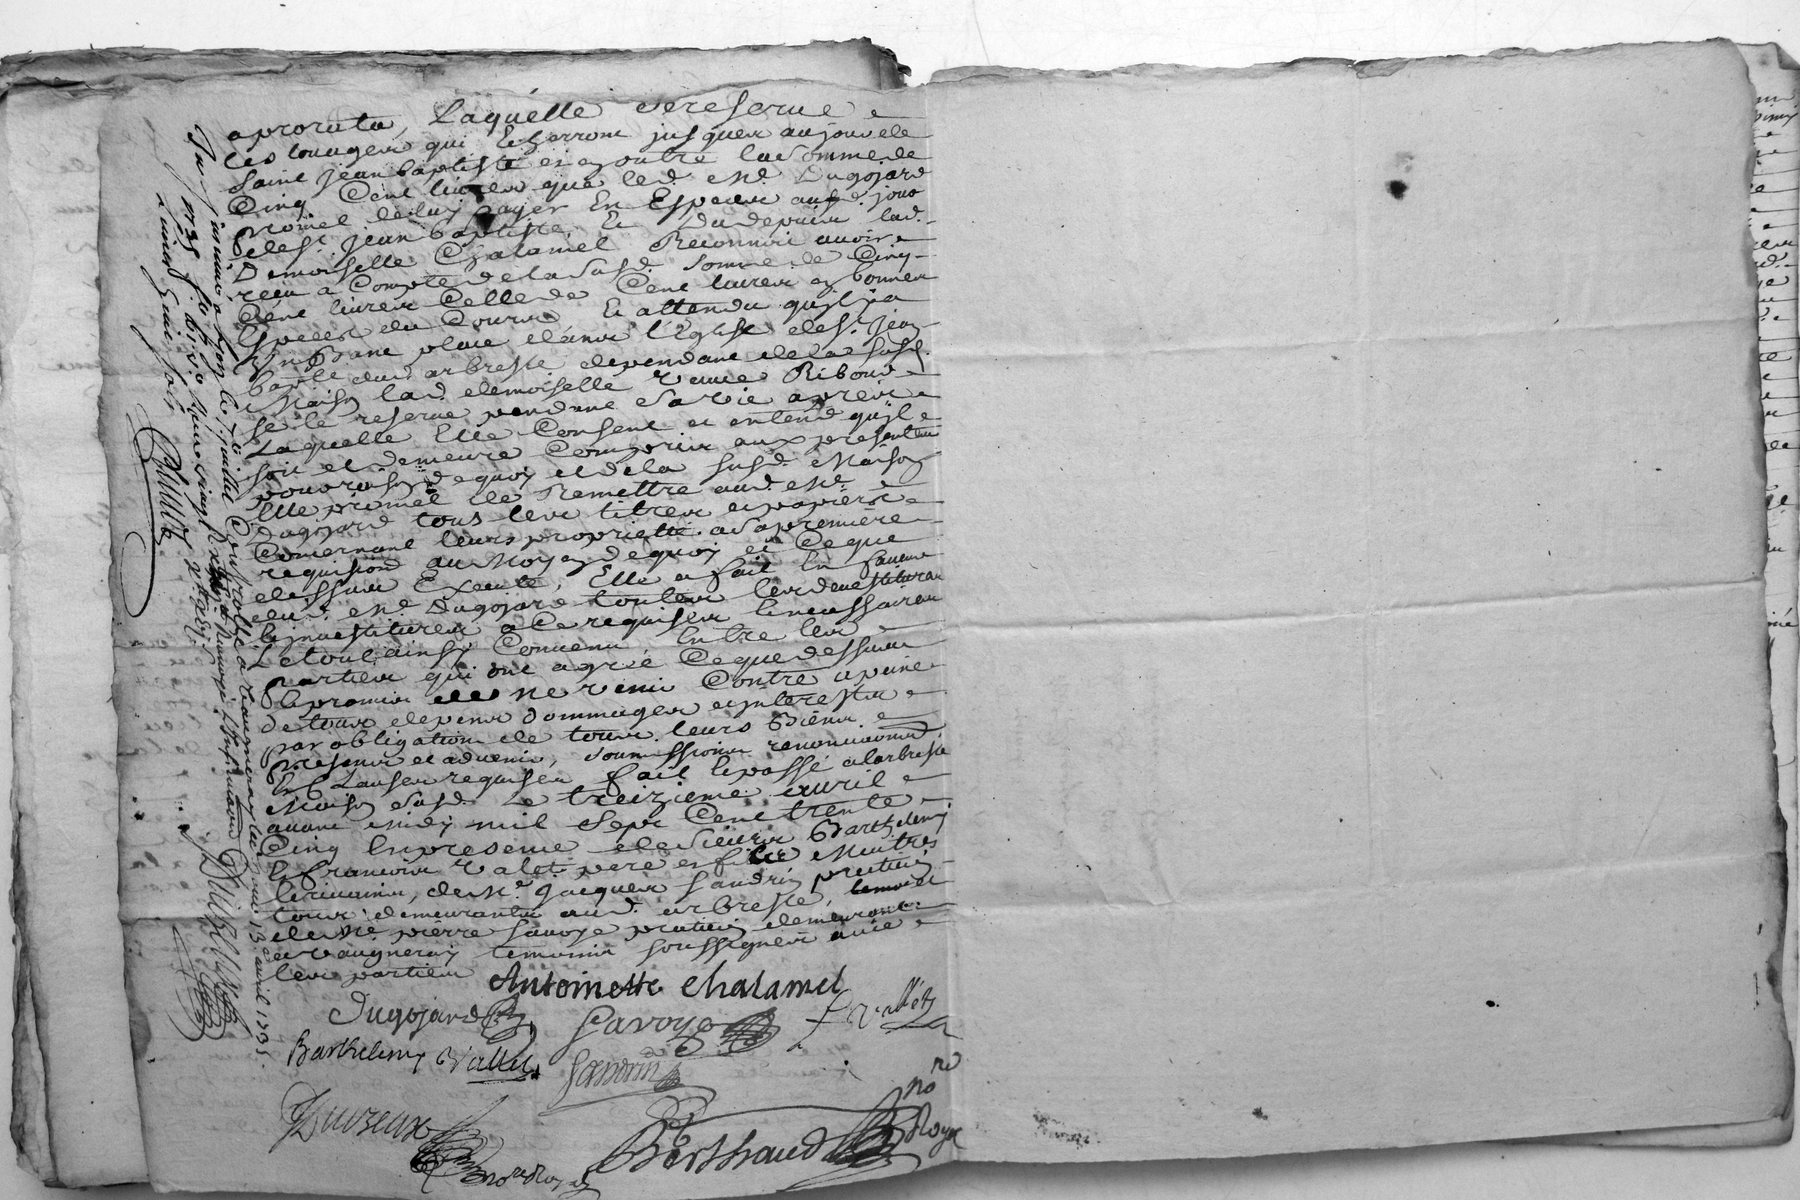 aprorata, Laquelle se reserve
les louages qui Écherront jusques au jour de
Saint Jean baptiste et en outre la somme de
Cinq Cent livres que led. Me. Dugojard
promet de luy payer En Especes aud. jour
de St. Jean baptiste, Et Du depuis lad.
Demoiselle Chalamel Reconnoit avoir
recu a Compte de la susd. somme de Cinq
Cent livres Celle de Cent livres en bonnes
Especes du Cours Et attendu quil y a
un banc placé dans l'Eglise de St. Jean
bapte. dud. arbresle dependant de la susd.
Maison lad. demoiselle veuve Riboud
se le reserve pendant sa vie apres
Laquelle Elle Consent et entend quil
soit et demeure Compris aux presentes
pour raison de quoy et de la susd. Maison
Elle promet de Remettre aud. Me.
Dugojard tous les titres et papiers
Concernant leurs proprietté a sa premiere
requisition au Moyen de quoy et Ce que
dessus Executé, Elle a fait En faveur
dud. Me. Dugojard toutes les devestitures
Et investitures a Ce requises Et necessaires
Le tout ainsy Convenu Entre les
parties qui ont agréé Ce que dessus
Et promis de ne venir Contre a peine
de tous depens dommages et interests
par obligation de tous leurs Biens
presens et advenir, soumissions renonciations
Et Clauses requises fait Et passé a larbresle
Maison susd. Le treizieme avril
avant midy mil sept Cent trente
Cinq En presence de sieurs Barthelemy
Et francois valet pere et fils Maitres
Ecrivains, de Me. Jacques Sandrin praticien
tous demeurants aud. arbresle, temoins Et
de Me. pierre Savoye praticien demeurant
a vaugneray temoins soussignés avec
les parties
Antoinette Chalamel
Dugojard Savoye f vallet
Barthelemy Vallet Sandrin
Duvreux nore Royal
Berthaud nore Royal
Controllé a vaugneray le 13e avril 1735.